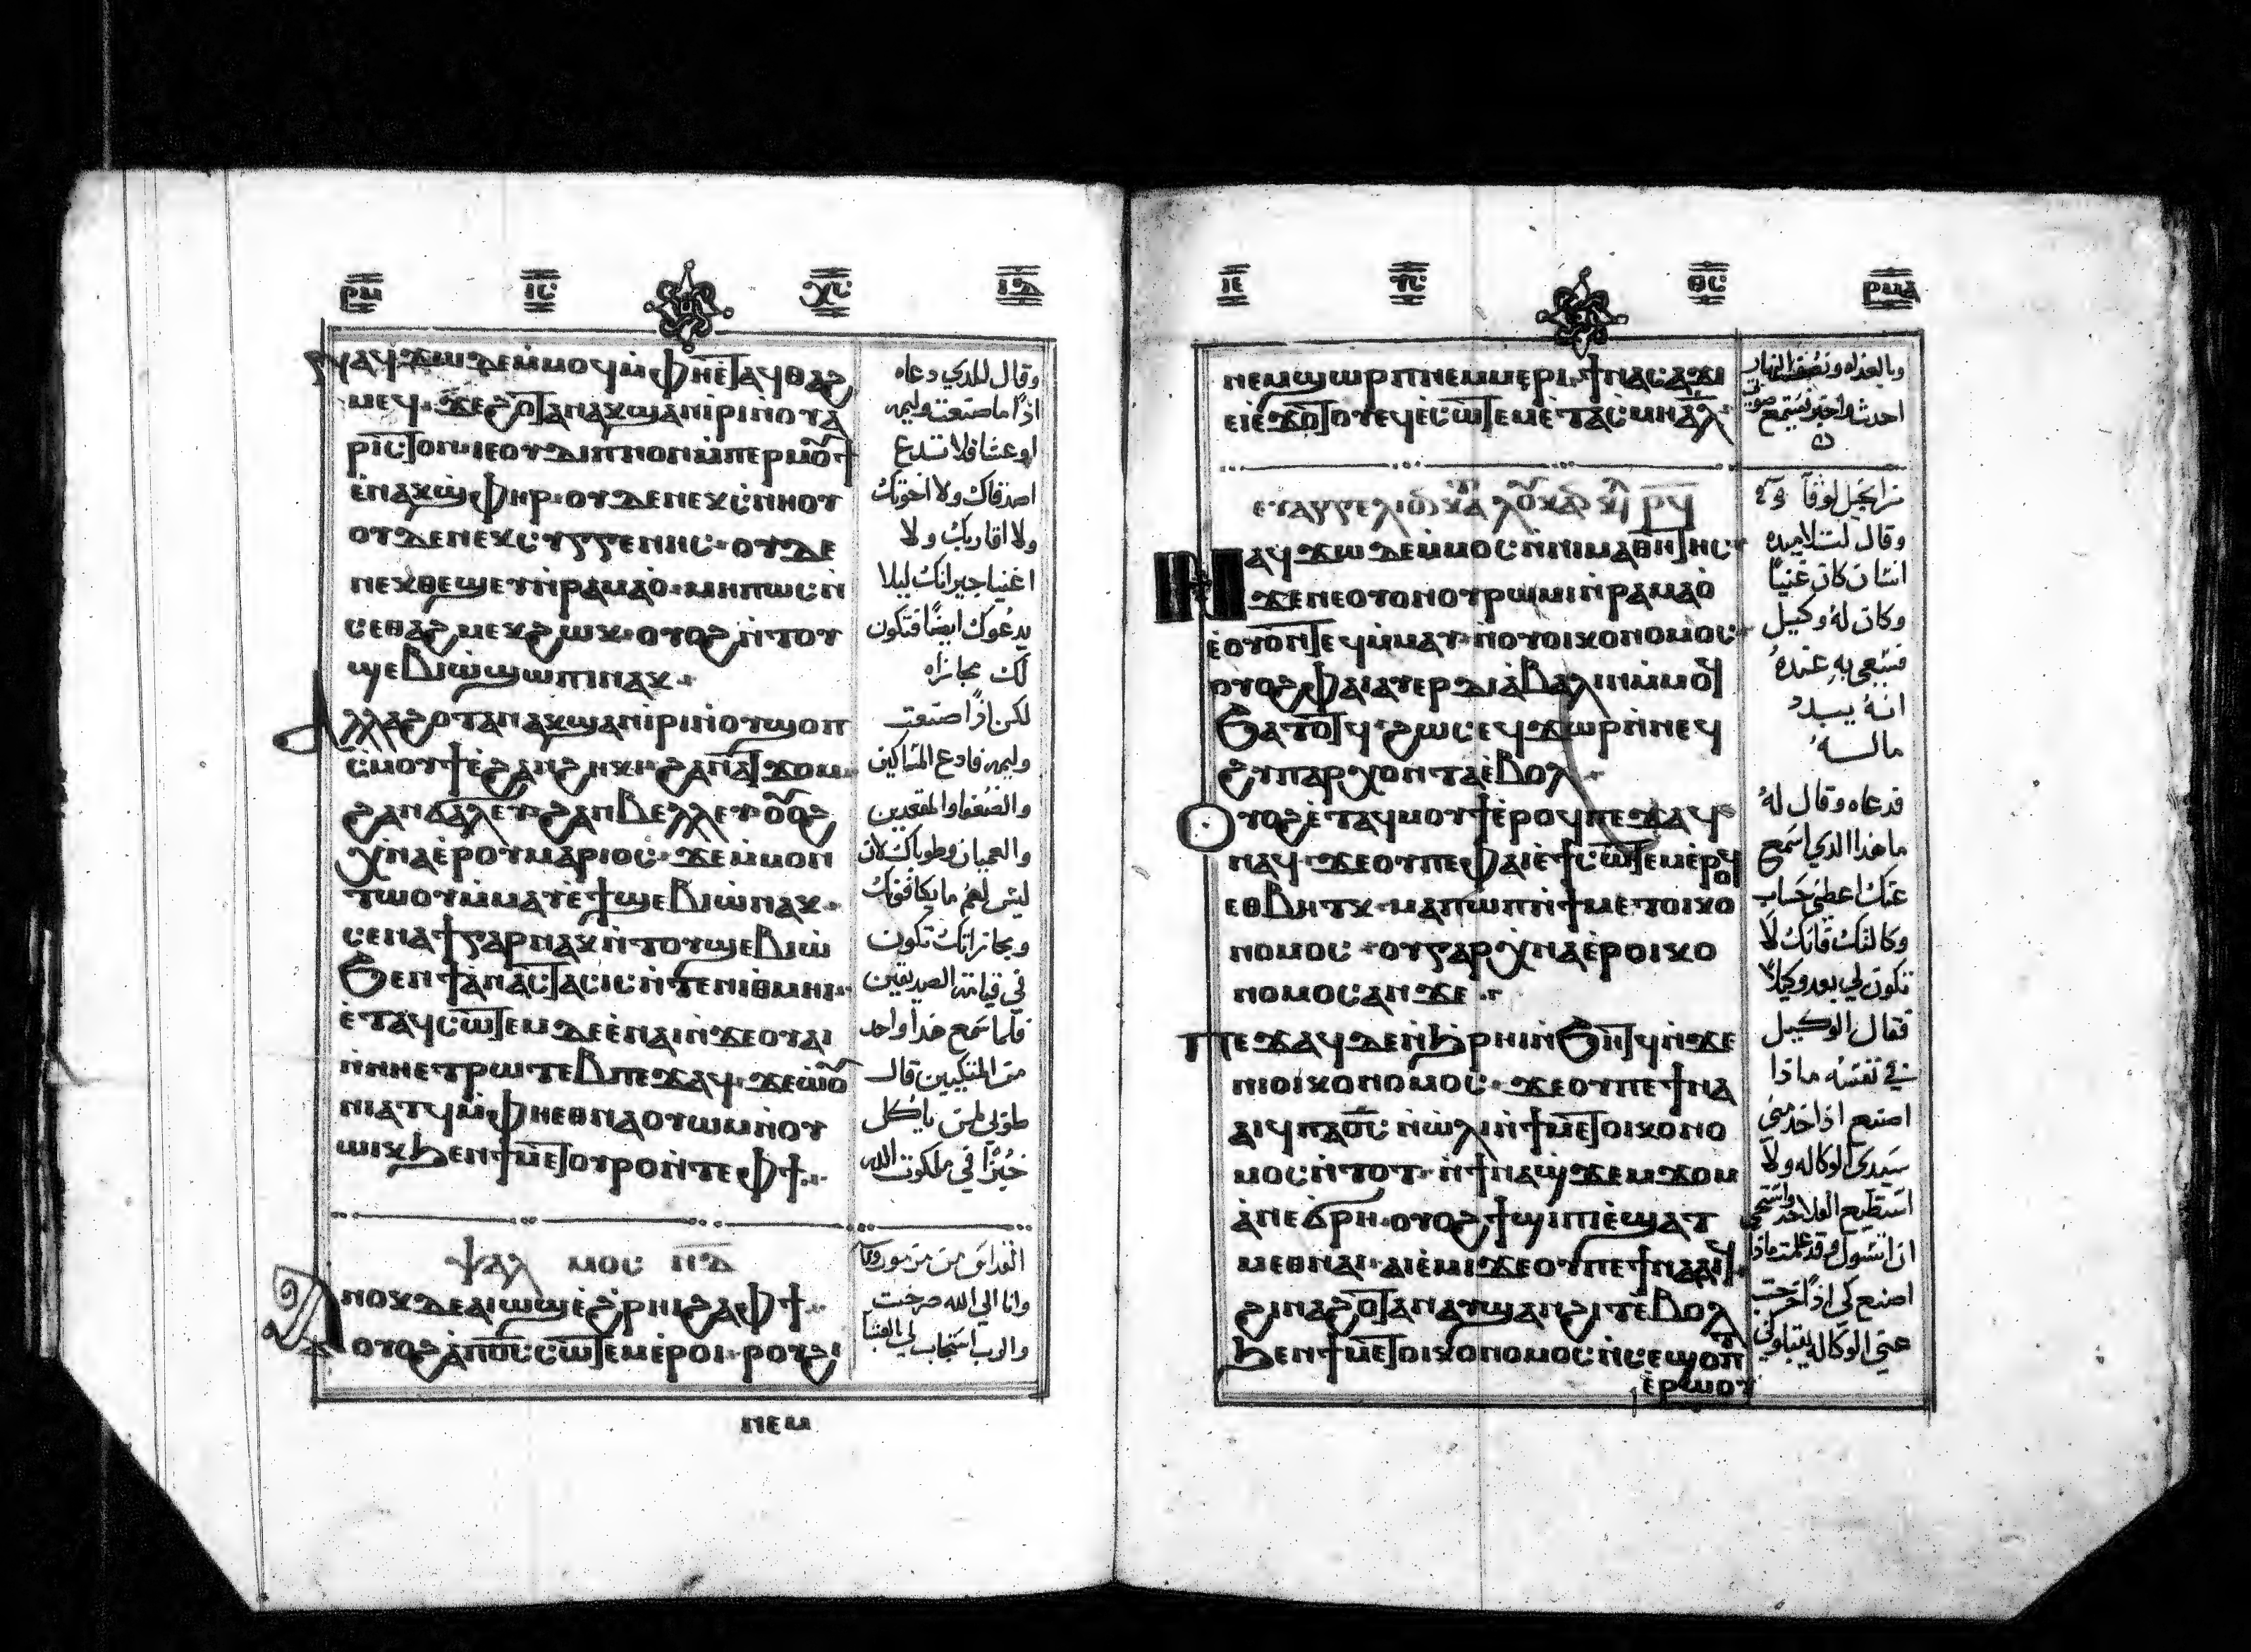 ⲣⲙ ⲓⲥ ⲭⲥ ⲓⲇ
ⲛⲁϥϫⲱ ⲇⲉ ⲙ̀ⲙⲟⲥ ⲙ̀ⲫⲏⲉⲧⲁϥⲑⲁϩ
ⲙⲉϥ ϫⲉ ϩⲟⲧⲁⲛ ⲁⲕϣⲁⲛⲓ̀ⲣⲓ ⲛ̀ⲟⲩⲁ̀
ⲣⲓⲥⲧⲟⲛ ⲓⲉ ⲟⲩⲇⲓⲡⲛⲟⲛ ⲙ̀ⲡⲉⲣⲙⲟⲩϯ
ⲉ̀ⲛⲉⲕϣⲫⲏⲣ ⲟⲩⲇⲉ ⲛⲉⲕⲥⲛⲏⲟⲩ
ⲟⲩⲇⲉ ⲛⲉⲕⲥⲩⲅⲅⲉⲛⲏⲥ ⲟⲩⲇⲉ
ⲛⲉⲕⲑⲉϣⲉⲩ ⲛ̀ⲣⲁⲙⲁⲟ̀ ⲙⲏⲡⲱⲥ ⲛ̀
ⲥⲉⲑⲁϩⲙⲉⲕ ϩⲱⲕ ⲟⲩⲟϩ ⲛ̀ⲧⲟⲩ
ϣⲉⲃⲓⲱ̀ ϣⲱⲡⲓ ⲛⲁⲕ
ⲁⲗⲗⲁ ϩⲟⲧⲁⲛ ⲁⲕϣⲁⲛⲓ̀ⲣⲓ ⲛ̀ⲟⲩϣⲟⲡ
ⲥ̀ ⲙⲟⲩϯ ⲉ̀ϩⲁⲛϩⲏⲕⲓ ϩⲁⲛⲁⲧϫⲟⲙ
ϩⲁⲛϭⲁⲗⲉⲩ ϩⲁⲛⲃⲉⲗⲗⲉⲩ ⲟⲩⲟϩ
ⲭ̀ⲛⲁⲉⲣ ⲟⲩⲙⲁⲕⲁⲣⲓⲟⲥ ϫⲉ ⲙ̀ⲙⲟⲛ
ⲧⲱⲟⲩ ⲙ̀ⲙⲁⲩ ⲉ̀ϯϣⲉⲃⲓⲱ̀ ⲛⲁⲕ
ⲥⲉⲛⲁϯ ⲅⲁⲣ ⲛⲁⲕ ⲛ̀ⲧⲟⲩϣⲉⲃⲓⲱ̀
ϧⲉⲛ ϯⲁ̀ⲛⲁⲥⲧⲁⲥⲓⲥ ⲛ̀ⲧⲉ ⲛⲓⲑⲙⲏⲓ
ⲉ̀ⲧⲁϥⲥⲱⲧⲉⲙ ⲇⲉ ⲉ̀ⲛⲁⲓ ⲛ̀ϫⲉ ⲟⲩⲁⲓ
ⲛ̀ⲛⲏⲉⲧⲣⲱⲧⲉⲃ ⲡⲉϫⲁϥ ϫⲉ ⲱⲟⲩ
ⲛⲓⲁⲧϥ ⲙ̀ⲫⲏⲉⲑⲛⲁⲟⲩⲱⲙ ⲛ̀ⲟⲩ
ⲱⲓⲕ ϧⲉⲛ ϯⲙⲉⲧⲟⲩⲣⲟ ⲛ̀ⲧⲉ ⲫϯ
ⲯⲁⲗⲙⲟⲥ ⲛ̅ⲇ̅
ⲁⲛⲟⲕ ⲇⲉ ⲁⲓⲱϣ ⲉ̀ϩⲣⲏⲓ ϩⲁ ⲫϯ
ⲟⲩⲟϩ ⲁ̀ ⲡⲟ̅ⲥ̅ ⲥⲱⲧⲉⲙ ⲉ̀ⲣⲟⲓ ⲣⲟⲩϩⲓ
ⲛⲉⲙ
وقال للذي دعاه
اذا ما صنعت وليمه
او عشا فلا تدع
اصدقاك ولا اخوتك
ولا اقاربك ولا
اغنيا جيرانك ليلا
يدعوك ايضا فتكون
لك مجازاه
لكن اذا صنعت
وليمه فادع المساكين
والضعفا والمقعدين
والعميان وطوباك لان
ليس لهم ما يكافوك
ومجازاتك تكون
في قيامة الصديقين
فلما سمع هذا واحد
من المتكيين قال
طوبى لمن ياكل
خبزا في ملكوت الله
وانا الي الله صرخت
والرب استجاب لي العشيا
ⲓⲉ ⲩⲥ ⲑⲥ ⲣⲙⲁ
ⲛⲉⲙ ϣⲱⲣⲡ ⲛⲉⲙ ⲙⲉⲣⲓ ϯⲛⲁⲥⲁϫⲓ
ⲉⲓⲉ̀ϫⲟⲧⲟⲩ ⲉϥⲉ̀ⲥⲱⲧⲉⲙ ⲉ̀ⲧⲁⲥⲙⲏ ⲁⲗ
ⲉⲩⲁⲅⲅⲉⲗⲓⲟⲛ ⲕⲁⲧⲁ ⲗⲟⲩⲕⲁⲛ
ⲛⲁϥϫⲱ ⲇⲉ ⲙ̀ⲙⲟⲥ ⲛ̀ⲛⲓⲙⲁⲑⲏⲧⲏⲥ
ϫⲉ ⲛⲉ ⲟⲩⲟⲛ ⲟⲩⲣⲱⲙⲓ ⲛ̀ⲣⲁⲙⲁⲟ̀
ⲉ̀ⲟⲩⲟⲛⲧⲉϥ ⲙ̀ⲙⲁⲩ ⲛ̀ⲟⲩⲟⲓⲕⲟⲛⲟⲙⲟⲥ
ⲟⲩⲟϩ ⲫⲁⲓ ⲁⲩⲉⲣⲇⲓⲁ̀ⲃⲁⲗⲓⲛ ⲙ̀ⲙⲟϥ
ϧⲁⲧⲟⲧϥ ϩⲱⲥ ⲉϥϫⲱⲣ ⲛ̀ⲛⲉϥ
ϩⲩⲡⲁⲣⲭⲟⲛⲧⲁ ⲉ̀ⲃⲟⲗ
ⲟⲩⲟϩ ⲉ̀ⲧⲁϥⲙⲟⲩϯ ⲉ̀ⲣⲟϥ ⲡⲉϫⲁϥ
ⲛⲁϥ ϫⲉ ⲟⲩ ⲡⲉ ⲫⲁⲓ ⲉ̀ϯⲥⲱⲧⲉⲙ ⲉ̀ⲣⲟϥ
ⲉⲑⲃⲏⲧⲕ ⲙⲁ ⲡⲱⲡ ⲛ̀ϯⲙⲉⲧⲟⲓⲕⲟ
ⲛⲟⲙⲟⲥ ⲟⲩ ⲅⲁⲣ ⲭ̀ⲛⲁⲉ̀ⲣⲟⲓⲕⲟ
ⲛⲟⲙⲟⲥ ⲁⲛ ϫⲉ
ⲡⲉϫⲁϥ ⲇⲉ ⲛ̀ϧⲣⲏⲓ ⲛ̀ϧⲏⲧϥ ⲛ̀ϫⲉ
ⲡⲓⲟⲓⲕⲟⲛⲟⲙⲟⲥ ϫⲉ ⲟⲩ ⲡⲉ ϯⲛⲁ
ⲁⲓϥ ⲡⲁⲟ̅ⲥ̅ ⲛ̀ⲱ̀ⲗⲓ ⲛ̀ϯⲙⲉⲧⲟⲓⲕⲟⲛⲟ
ⲙⲟⲥ ⲛ̀ⲧⲟⲧ ⲛ̀ϯⲛⲁϣϫⲉⲙϫⲟⲙ
ⲁⲛ ⲉ̀ϭⲣⲏ ⲟⲩⲟϩ ϯϣⲓⲡⲓ ⲉ̀ϣⲁⲧ
ⲙⲉⲑⲛⲁⲓ ⲁⲓⲉ̀ⲙⲓ ϫⲉ ⲟⲩ ⲡⲉ ϯⲛⲁⲁⲓϥ
ϩⲓⲛⲁ ϩⲟⲧⲁⲛ ⲁⲩϣⲁⲛϩⲓⲧ ⲉ̀ⲃⲟⲗ
ϧⲉⲛ ϯⲙⲉⲧⲟⲓⲕⲟⲛⲟⲙⲟⲥ ⲛ̀ⲥⲉϣⲟⲡⲧ
ⲉ̀ⲣⲱⲟⲩ
وبالغداه ونصف النهار
من انجيل لوقا
وقال لتلاميده
انسان كان غنيا
وكان له وكيل
فسعي به عنده
انه يبدد
ماله
فدعاه وقال له
ما هذا الذي اسمع
عنك اعطني حساب
وكالتك فانك لا
تكون لي بعد وكيلا
فقال الوكيل
في نفسه ماذا
اصنع اذا اخذ مني
سيدي الوكاله ولا
استطيع الفلاحه
اصنع كي اذا خرجت
عني الوكاله يقبلوني